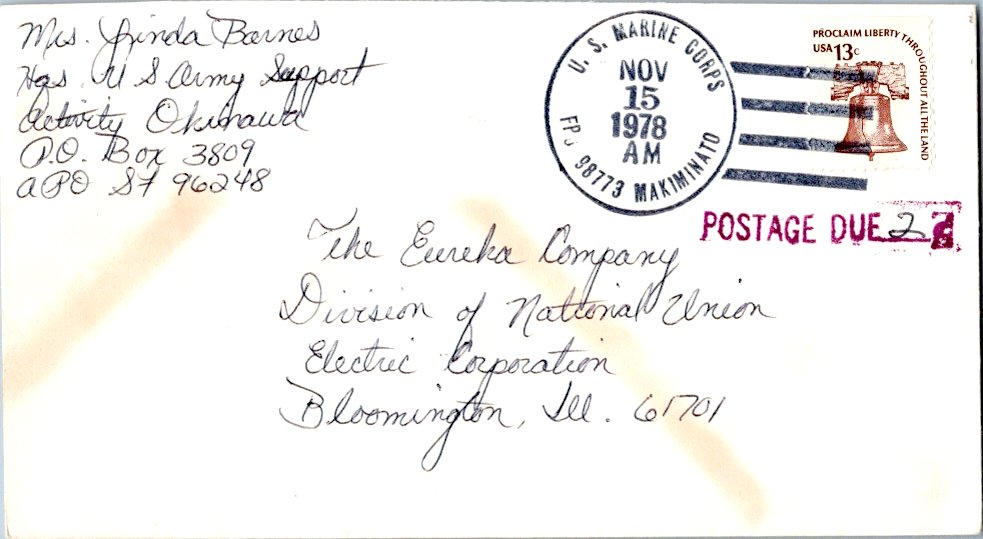 Mrs. Linda Barnes
Hqs. U S Army Support
Activity Okinawa
P.O. Box 3809
APO SF 96248
U. S. MARINE CORPS
NOV
15
1978
AM
FPO 98773 MAKIMINATO
PROCLAIM LIBERTY THROUGHOUT ALL THE LAND
USA 13c
POSTAGE DUE 2¢
The Eureka Company
Division of National Union
Electric Corporation
Bloomington, Ill. 61701